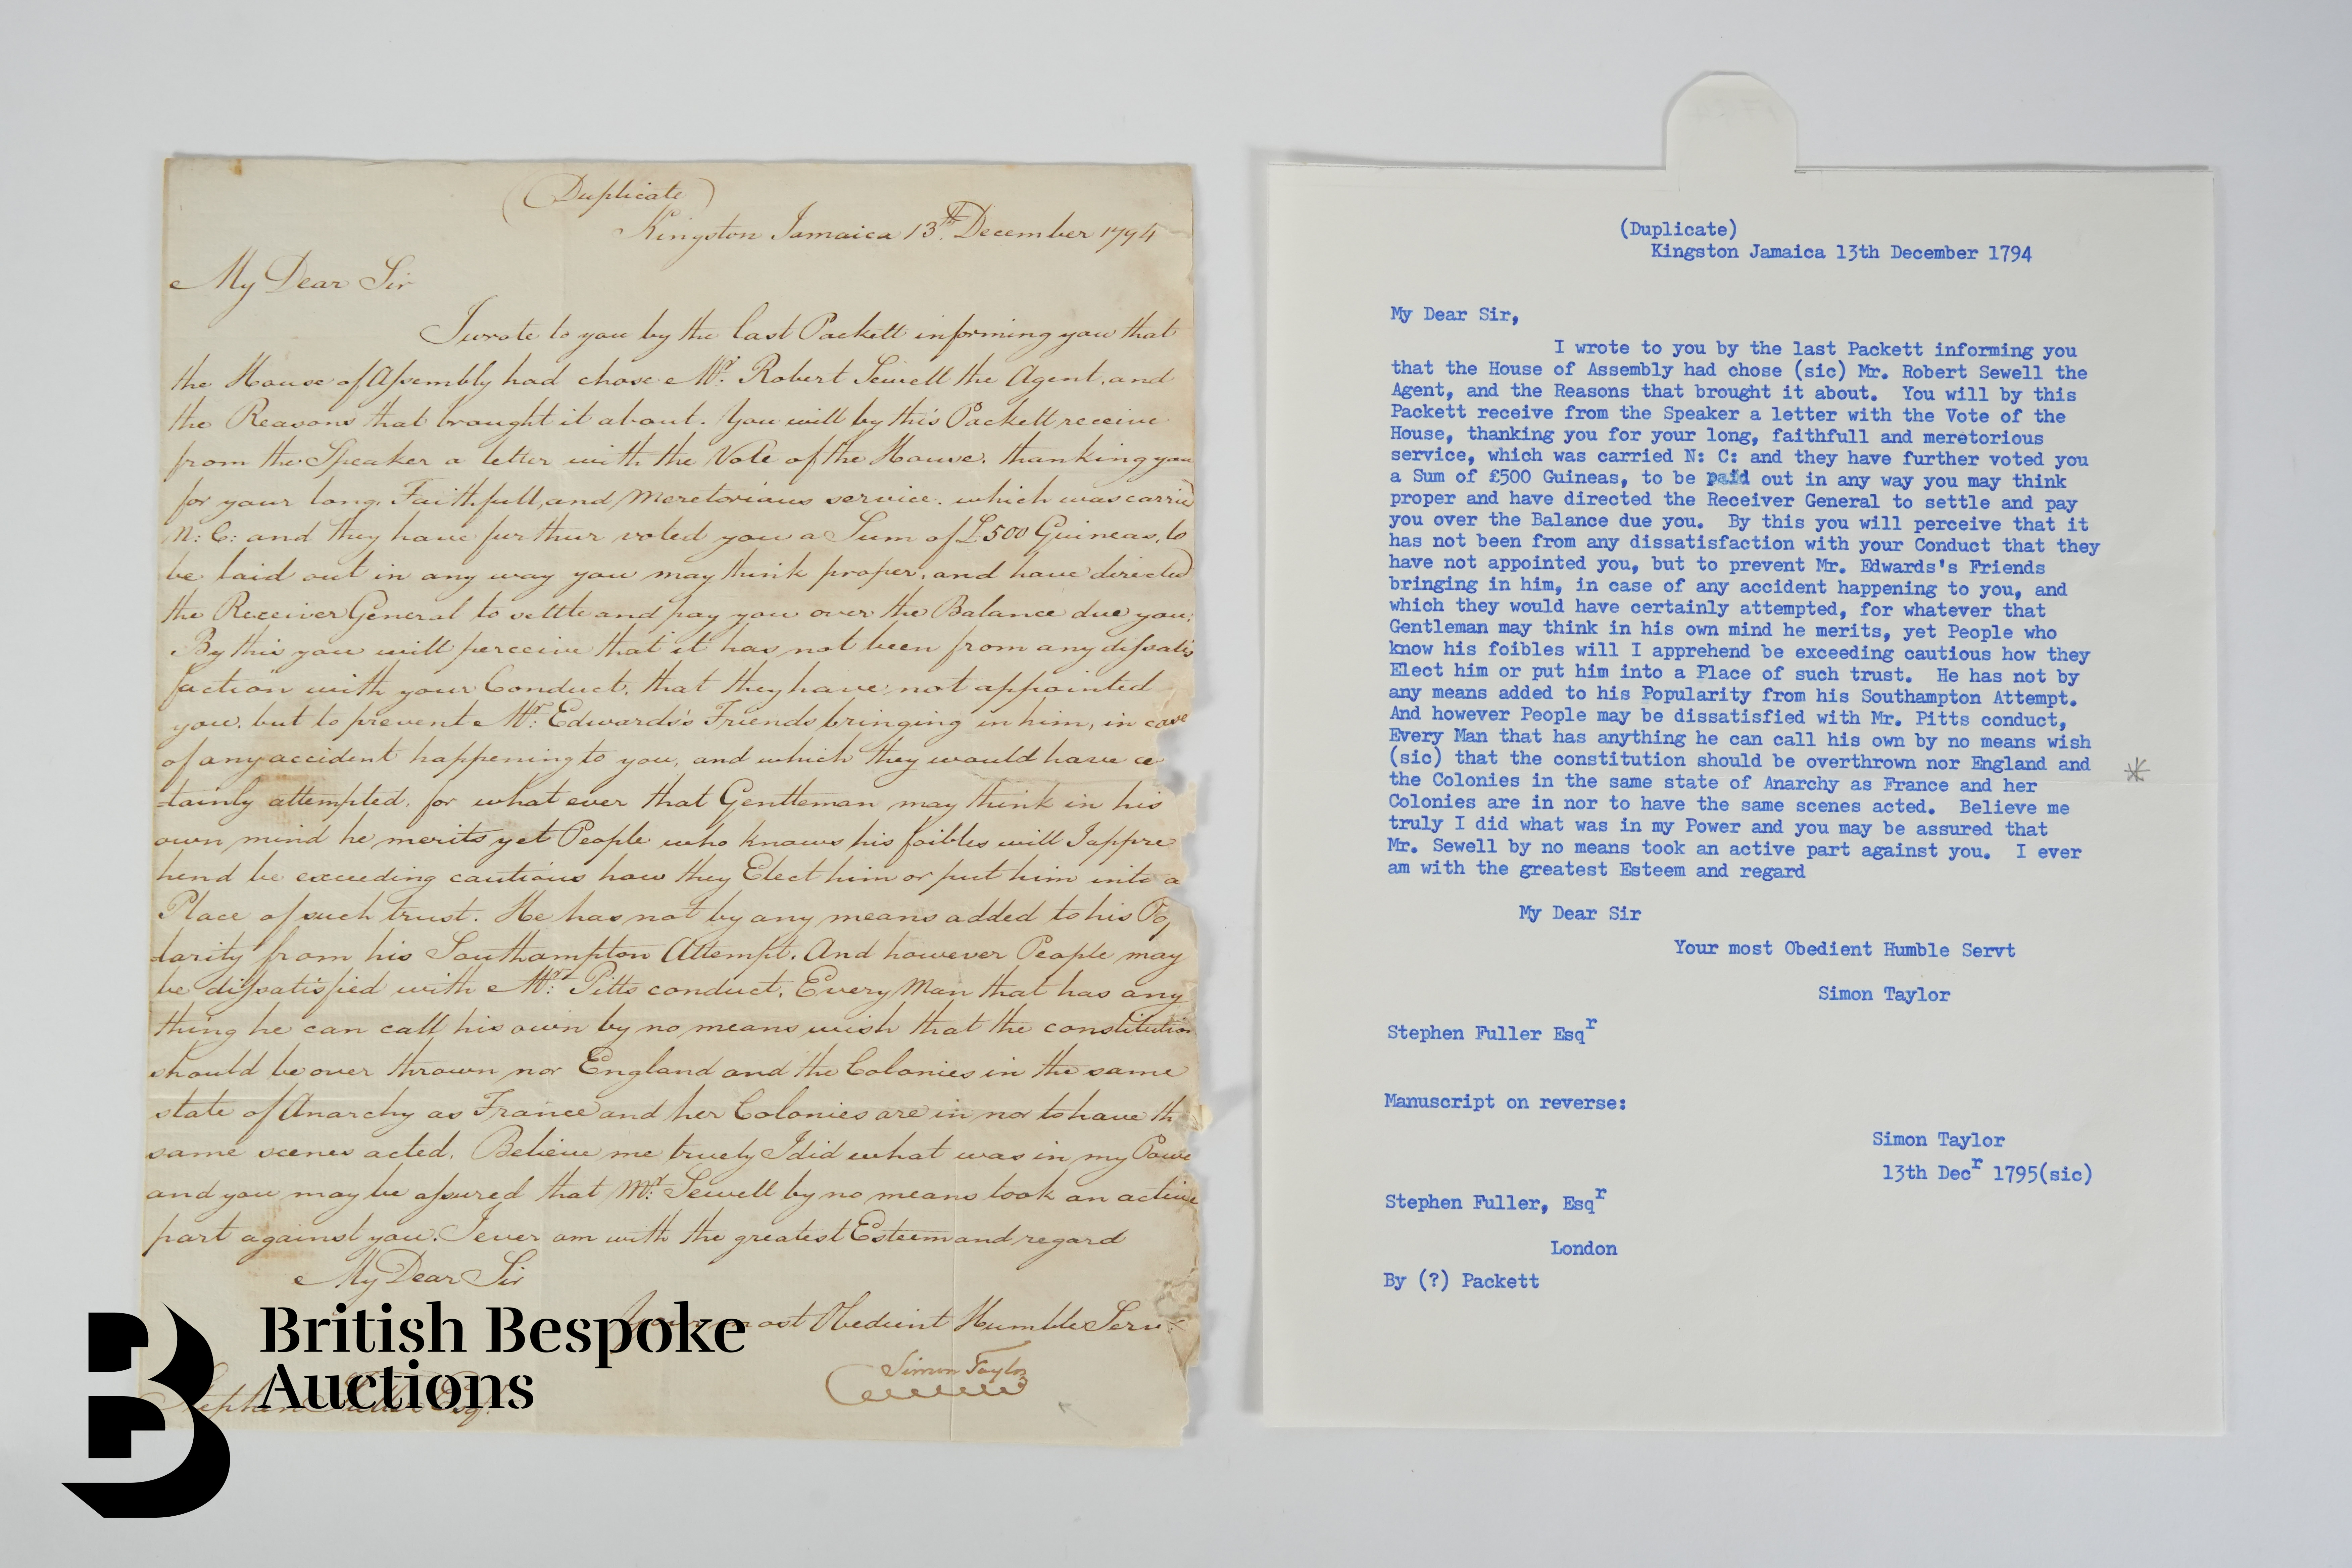 (Duplicate)
Kingston Jamaica 13th. December 1794
My Dear Sir
I wrote to you by the last Packett informing you that
the House of Assembly had chose Mr. Robert Sewell the Agent, and
the Reasons that brought it about. You will by this Packett receive
from the Speaker a letter with the Vote of the House, thanking you
for your long, Faithfull, and Meretorious service, which was carried
N: C: and they have further voted you a Sum of £500 Guineas, to
be laid out in any way you may think proper, and have directed
the Receiver General to settle and pay you over the Balance due you:
By this you will perceive that it has not been from any dissatis
faction with your Conduct, that they have not appointed
you, but to prevent Mr. Edwards's Friends bringing in him, in case
of any accident happening to you, and which they would have ce
tainly attempted, for what ever that Gentleman may think in his
own mind he merits yet People who knows his foibles will I appre
hend be exceeding cautious how they Elect him or put him into a
Place of such trust. He has not by any means added to his Po
larity from his Southampton Attempt. And however People may
be dissatisfied with Mr. Pitts conduct, Every Man that has any
thing he can call his own by no means wish that the constitution
should be over thrown nor England and the Colonies in the same
state of Anarchy as France and her Colonies are in nor to have th
same scenes acted. Believe me truely I did what was in my Powe
and you may be assured that Mr. Sewell by no means took an active
part against you. I ever am with the greatest Esteem and regard
My Dear Sir
Your most Obedient Humble Serv
Simon Taylor
Stephen Fuller Esqr.
British Bespoke
Auctions
(Duplicate)
Kingston Jamaica 13th December 1794
My Dear Sir,
I wrote to you by the last Packett informing you
that the House of Assembly had chose (sic) Mr. Robert Sewell the
Agent, and the Reasons that brought it about. You will by this
Packett receive from the Speaker a letter with the Vote of the
House, thanking you for your long, faithfull and meretorious
service, which was carried N: C: and they have further voted you
a Sum of £500 Guineas, to be paid out in any way you may think
proper and have directed the Receiver General to settle and pay
you over the Balance due you. By this you will perceive that it
has not been from any dissatisfaction with your Conduct that they
have not appointed you, but to prevent Mr. Edwards's Friends
bringing in him, in case of any accident happening to you, and
which they would have certainly attempted, for whatever that
Gentleman may think in his own mind he merits, yet People who
know his foibles will I apprehend be exceeding cautious how they
Elect him or put him into a Place of such trust. He has not by
any means added to his Popularity from his Southampton Attempt.
And however People may be dissatisfied with Mr. Pitts conduct,
Every Man that has anything he can call his own by no means wish
(sic) that the constitution should be overthrown nor England and
the Colonies in the same state of Anarchy as France and her
Colonies are in nor to have the same scenes acted. Believe me
truly I did what was in my Power and you may be assured that
Mr. Sewell by no means took an active part against you. I ever
am with the greatest Esteem and regard
My Dear Sir
Your most Obedient Humble Servt
Simon Taylor
Stephen Fuller Esqr
Manuscript on reverse:
Simon Taylor
13th Decr 1795(sic)
Stephen Fuller, Esqr
London
By (?) Packett